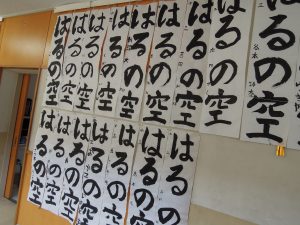 はるの空
はるの空
はるの空
はるの空
はるの空
はるの空
はるの空
はるの空
はるの空
はるの空
はるの空
はるの空
はるの空
はるの空